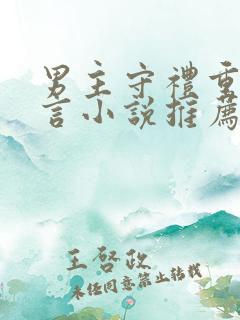 男主守禮重
言小說推薦
王啓政
未經同意禁止轉載